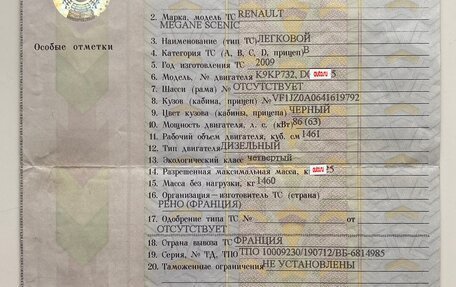 2. Марка, модель ТС RENAULT
MEGANE SCENIC
Особые отметки
3. Наименование (тип ТС) ЛЕГКОВОЙ
4. Категория ТС (А, В, С, D, прицеп) B
5. Год изготовления ТС 2009
6. Модель, № двигателя K9KP732, D auto.ru 5
7. Шасси (рама) № ОТСУТСТВУЕТ
8. Кузов (кабина, прицеп) № VF1JZ0A0641619792
9. Цвет кузова (кабины, прицепа) ЧЕРНЫЙ
10. Мощность двигателя, л. с. (кВт) 86 (63)
11. Рабочий объем двигателя, куб. см 1461
12. Тип двигателя ДИЗЕЛЬНЫЙ
13. Экологический класс четвертый
14. Разрешенная максимальная масса, кг auto.ru 25
15. Масса без нагрузки, кг 1460
16. Организация-изготовитель ТС (страна)
РЕНО (ФРАНЦИЯ)
17. Одобрение типа ТС № от
ОТСУТСТВУЕТ
18. Страна вывоза ТС ФРАНЦИЯ
19. Серия, № ТД, ТПО ТПО 10009230/190712/ВБ-6814985
20. Таможенные ограничения НЕ УСТАНОВЛЕНЫ